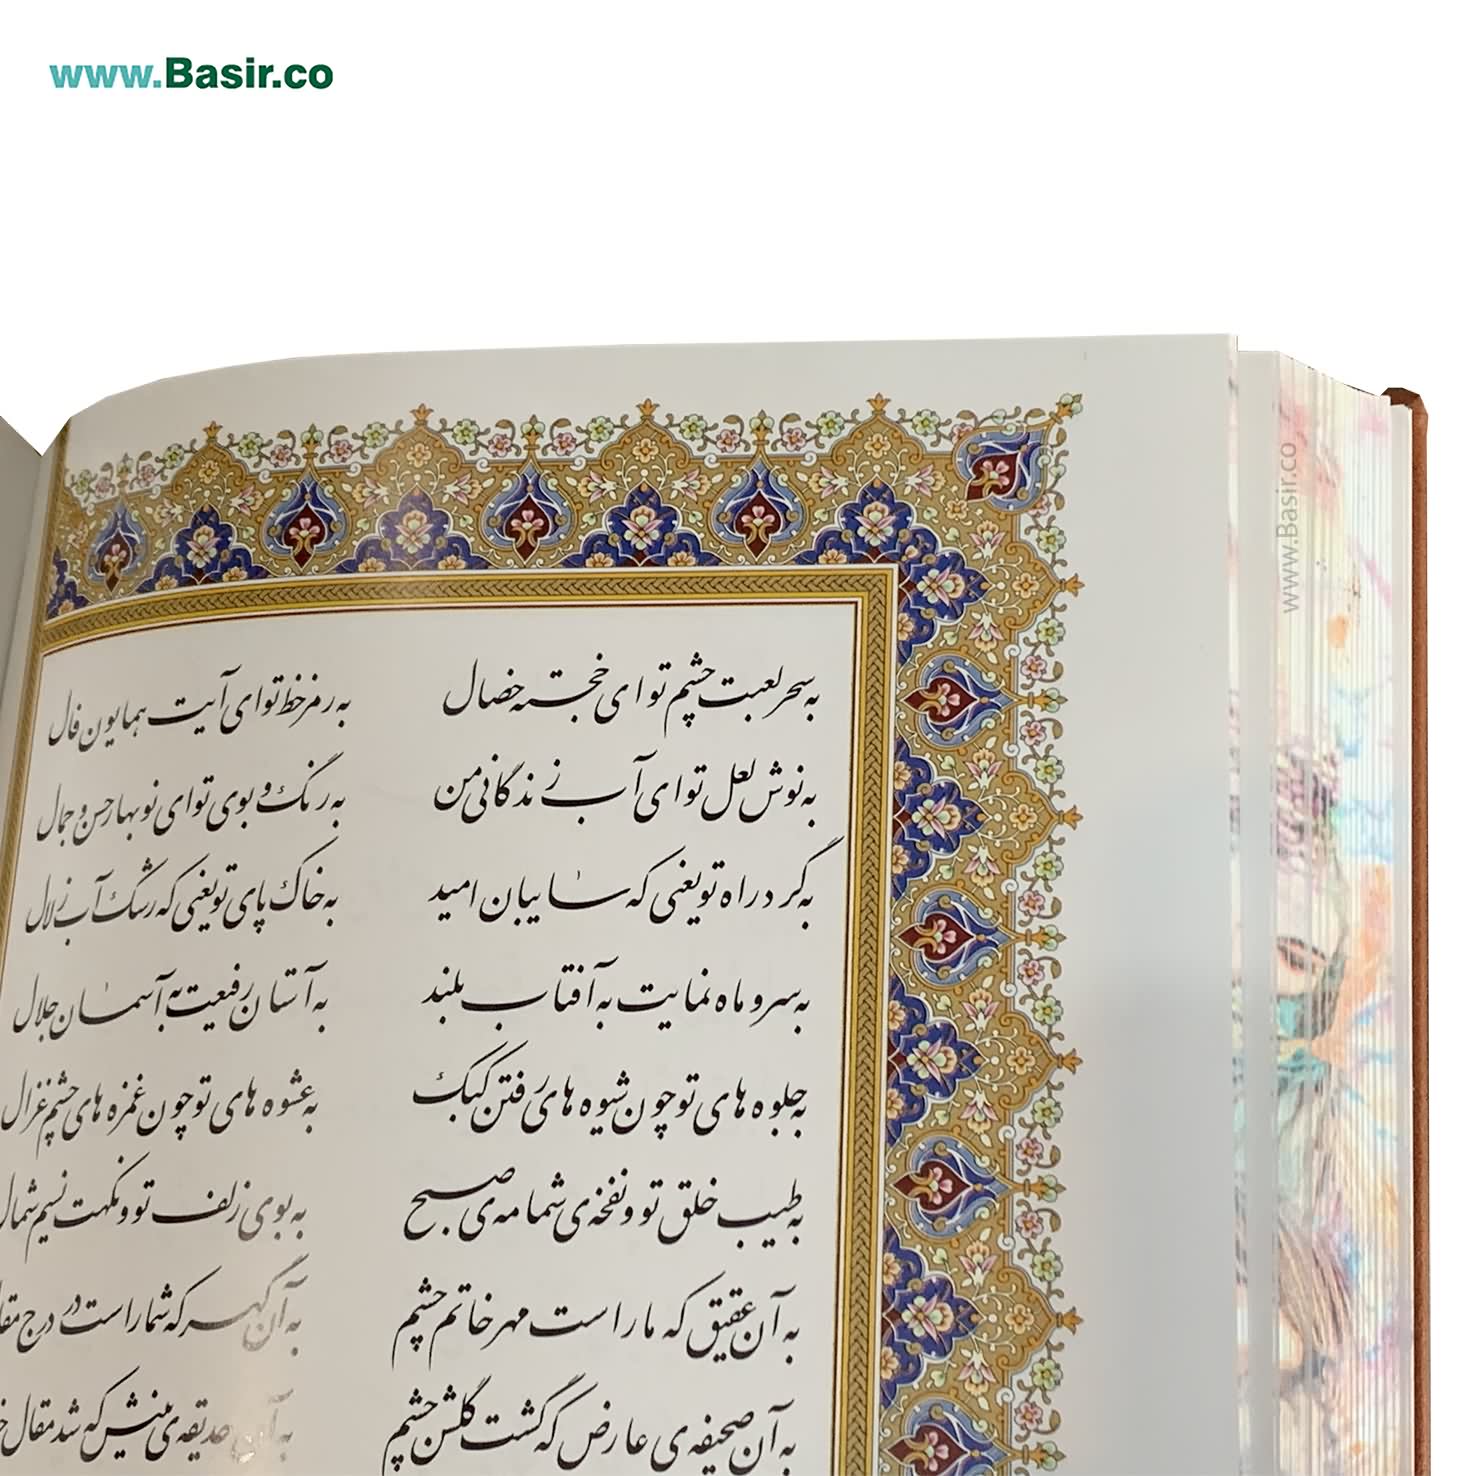 www.Basir.co
به سحر لعبت چشم تو ای خجسته خصال به رمز خط تو ای آیت همایون فال
به نوش لعل تو ای آب زندگانی من به رنگ و بوی تو ای نوبهار حسن و جمال
به گرد راه تو یعنی که سایبان امید به خاک پای تو یعنی که رشک آب زلال
به سرو ماه نمایت به آفتاب بلند به آستان رفیعت به آسمان جلال
به جلوه های تو چون شیوه های رفتن کبک به عشوه های تو چون غمزه های چشم غزال
به طیب خلق تو و نفخه ی شمامه ی صبح به بوی زلف تو و نکهت نسیم شمال
به آن عقیق که ما راست مهر خاتم چشم به آن گهر که شما راست در درج
به آن صحیفه ی عارض که گشت گلشن چشم به آن حدیقه ی بینش که شد مقال
www.Basir.co